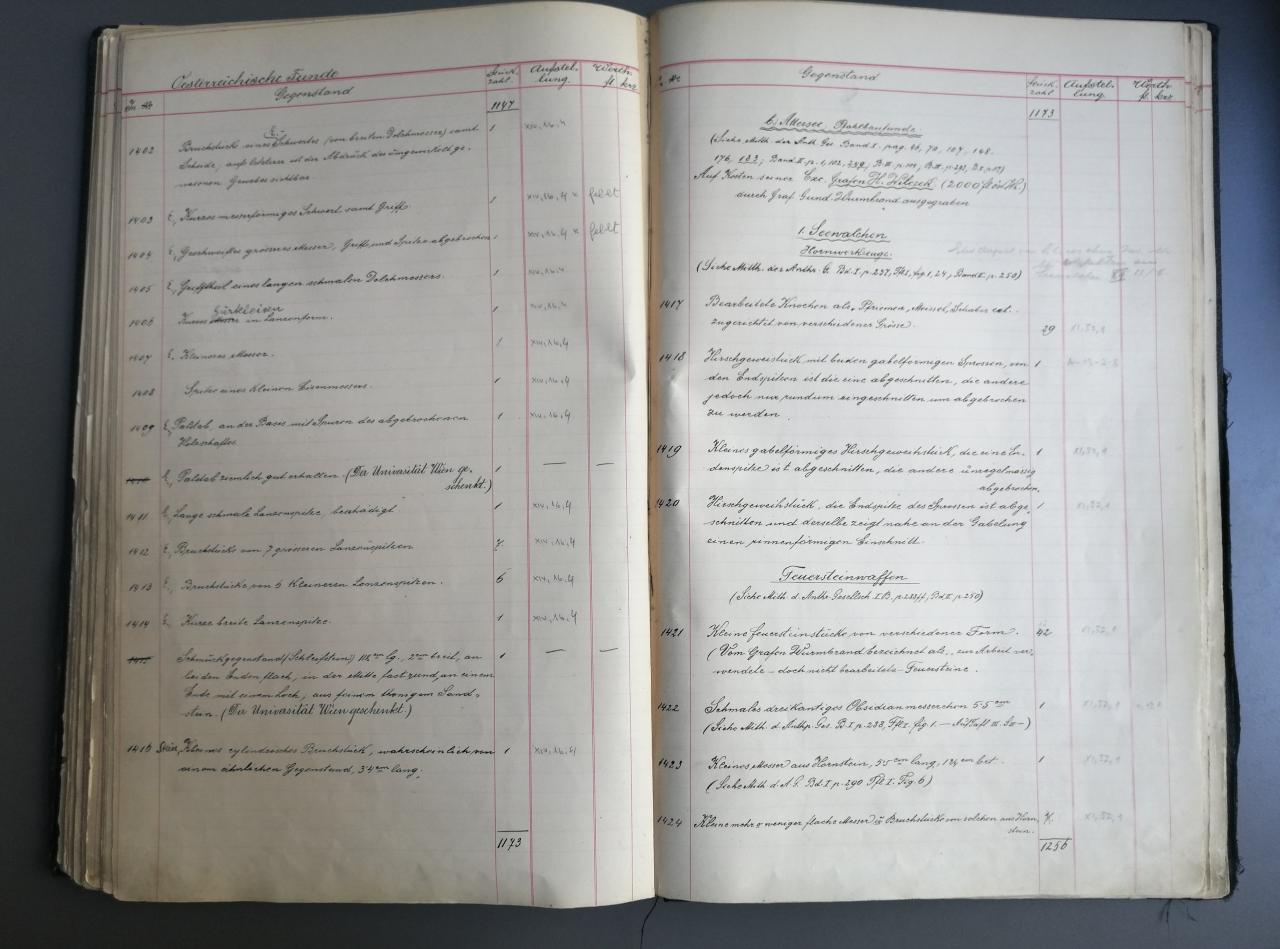 Oesterreichische Funde
Gegenstand
Stück-
zahl.
Aufstel-
lung.
Werth
fl. krz
1147
1402 E. Bruchstück eines Schwertes (von breiten Dolchmesser) samt 1 XIV, 16, 4
Scheide, auf letzterer ist der Abdruck des ge-
wesenen Gewebes sichtbar.
1403 E. Kurzes messerförmiges Schwert samt Griffe. 1 XIV, 16, 4 × fehlt
1404 E. Geschweiftes grösseres Messer, Griff und Spitze abgebrochen 1 XIV, 16, 4 × fehlt
1405 E. Grifftheil eines langen schmalen Dolchmessers. 1 XIV, 16, 4
1406 Kurzes in Lanzenform. 1 XIV, 16, 4
1407 E. Kleineres Messer. 1 XIV, 16, 4
1408 Spitze eines kleinen Eisenmessers. 1 XIV, 16, 4
1409 E. Palstab, an der Basis mit Spuren des abgebrochenen 1 XIV, 16, 4
Holzschaftes.
1410 E. Palstab ziemlich gut erhalten. (Der Universität Wien ge- 1 — —
schenkt.)
1411 E. Lange schmale Lanzenspitze, beschädigt 1 XIV, 16, 4
1412 E. Bruchstücke von 7 grösseren Lanzenspitzen 7. XIV, 16, 4
1413 E. Bruchstücke von 5 kleineren Lanzenspitzen. 5 XIV, 16, 4
1414 E. Kurze breite Lanzenspitze. 1 XIV, 16, 4
1415 Schmuckgegenstand (Schleifstein) lg., 2 cm breit, an 1 — —
beiden Enden flach, in der Mitte fast rund, an einem
Ende mit einem Loch, aus feinem thonigem Sand-
stein. (Der Universität Wien geschenkt.)
1416 Stein, Kleines cylindrisches Bruchstück, wahrscheinlich von 1 XIV, 16, 4
einem ähnlichen Gegenstand, 3·4 cm lang.
1173
Gegenstand
Stück-
zahl
Aufstel-
lung.
Werth
fl. krz
1173
Attersee, Pfahlbaufunde
(Siehe Mitth. der Anth. Ges. Band I. pag. 46, 70, 107, 148.
Auf Kosten seiner Exc. Grafen H. Wilczek (2000 fl öst. W.)
durch Graf Gund. Wurmbrand ausgegraben
1. Seewalchen
Hornwerkzeuge.
(Siehe Mitth. der Anthr. G. Bd. I, p. 237, Tfl I, fig. 1, 24, Band II. p. 250)
1417 Bearbeitete Knochen als, Pfriemen, Meissel, Schaber ect.
zugerichtet von verschiedener Grösse. 29 XI, 32, 1
1418 Hirschgeweistück mit beiden gabelförmigen Sprossen, von 1
den Endspitzen ist die eine abgeschnitten, die andere
jedoch nur rundum eingeschnitten um abgebrochen
zu werden.
1419 Kleines gabelförmiges Hirschgeweihstück, die eine En- 1 XI, 32, 1
denspitze ist abgeschnitten, die andere unregelmässig
abgebrochen.
1420 Hirschgeweihstück, die Endspitze des Sprossen ist abge- 1 XI, 32, 1
schnitten und derselbe zeigt nahe an der Gabelung
einen rinnenförmigen Einschnitt.
Feuersteinwaffen
(Siehe Mitth. d. Anthr. Gesellsch. I B. p. 288 ff, Bd II p. 250)
1421 Kleine Feuersteinstücke von verschiedener Form. 42 XI, 32, 1
(Vom Grafen Wurmbrand bezeichnet als, zur Arbeit ver-
wendete - doch nicht bearbeitete - Feuersteine.
1422 Schmales dreikantiges Obsidianmesserchen 5·5 cm 1 XI, 32, 1
(Siehe Mitth. d. Anthp. Ges. B. I, p. 288, Tfl I. fig. 1.
1423 Kleines Messer aus Hornstein, 5·5 cm lang, 1¾ cm bet. 1 XI, 32, 1
(Siehe Mitth. d. A. G. Bd. I, p. 290 Tfl I. Fig. 6)
1424 Kleine mehr o. weniger flache Messer u. Bruchstücke von solchen aus Horn 7. XI, 32, 1
stein.
1256